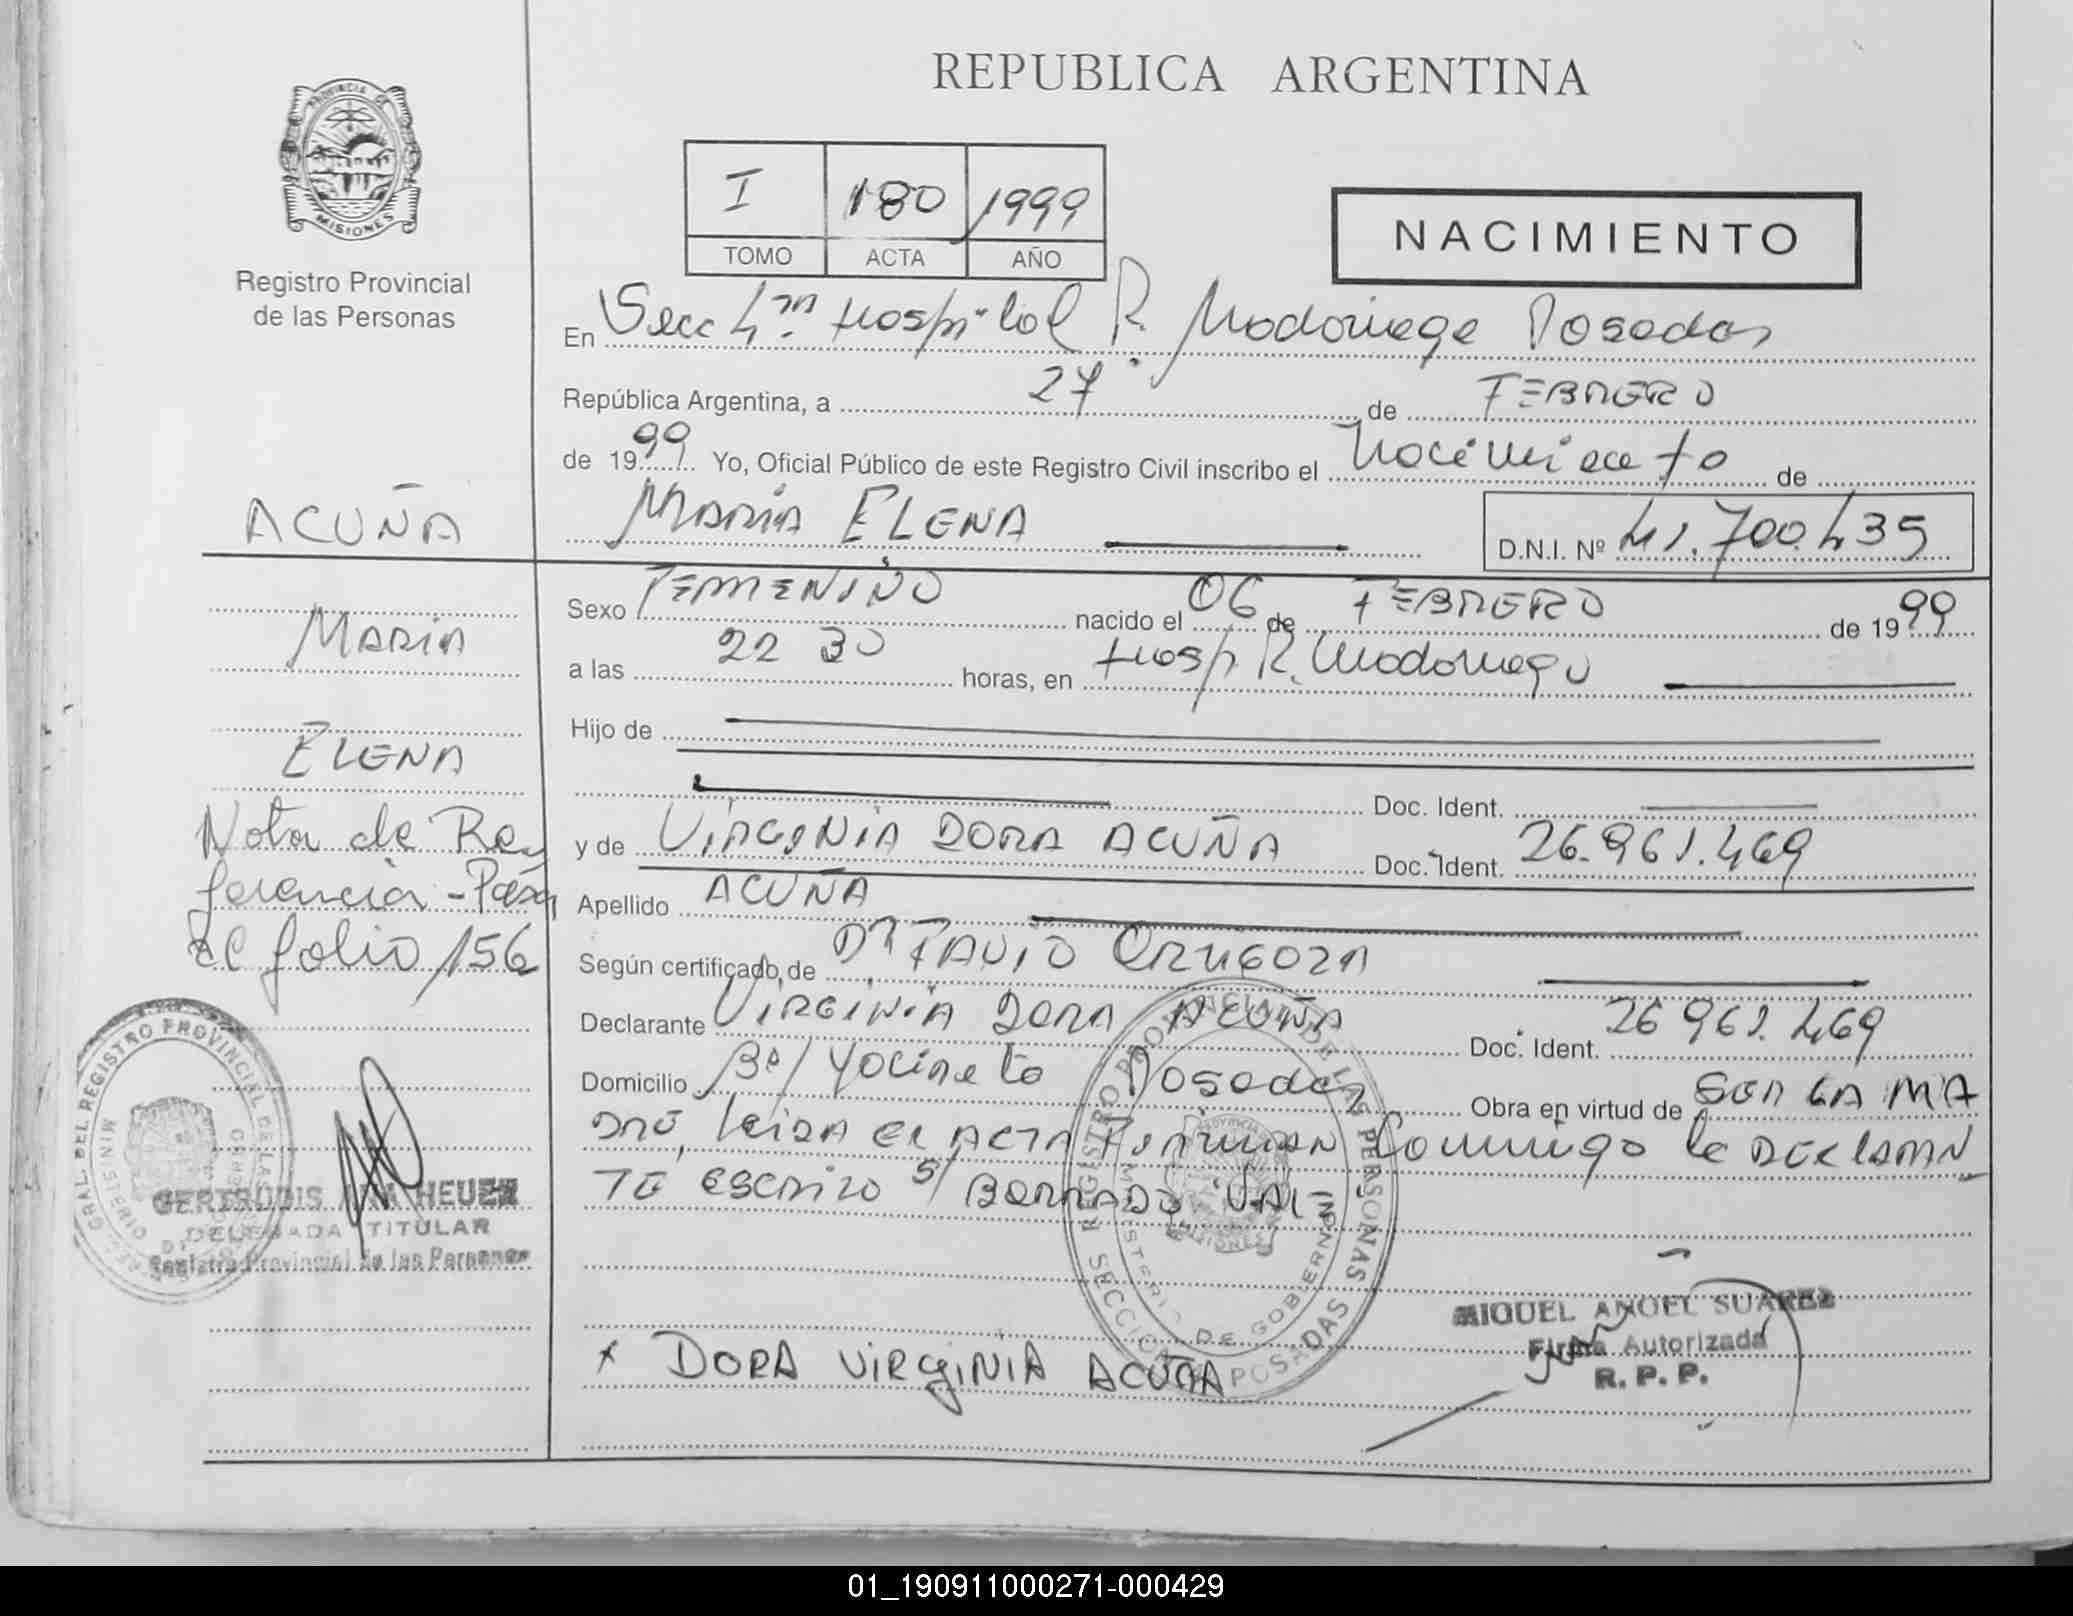 REPUBLICA ARGENTINA
PROVINCIA DE
MISIONES
Registro Provincial
de las Personas
I 180 1999
TOMO ACTA AÑO
NACIMIENTO
En Secc 4ta Hospital R. Madariaga Posadas
República Argentina, a 27 de FEBRERO
de 1999 Yo, Oficial Público de este Registro Civil inscribo el Nacimiento de
MARIA ELENA D.N.I. Nº 41.700.435
ACUÑA
MARIA
ELENA
Nota de Re
ferencia - Pasa
al folio 156
GERTRUDIS HEUER
DELEGADA TITULAR
Registro Provincial de las Personas
Sexo FEMENINO nacido el 06 de FEBRERO de 1999
a las 22 30 horas, en Hosp R. Madariaga
Hijo de
Doc. Ident.
y de VIRGINIA DORA ACUÑA Doc. Ident. 26.961.469
Apellido ACUÑA
Según certificado, de Dr
Declarante VIRGINIA DORA ACUÑA Doc. Ident. 26 961.469
Domicilio Bº/ Yacireta Posadas Obra en virtud de SER LA MA
DRE, leida el ACTA FIRMAN Conmigo la DECLARAN
TE ESCRITO S/ BORRADO VALE
REGISTRO PROVINCIAL DE LAS PERSONAS
MINISTERIO DE GOBIERNO
SECCION POSADAS
MISIONES
MIGUEL ANGEL SUAREZ
Firma Autorizada
R. P. P.
x DORA VIRGINIA ACUÑA
01_190911000271-000429